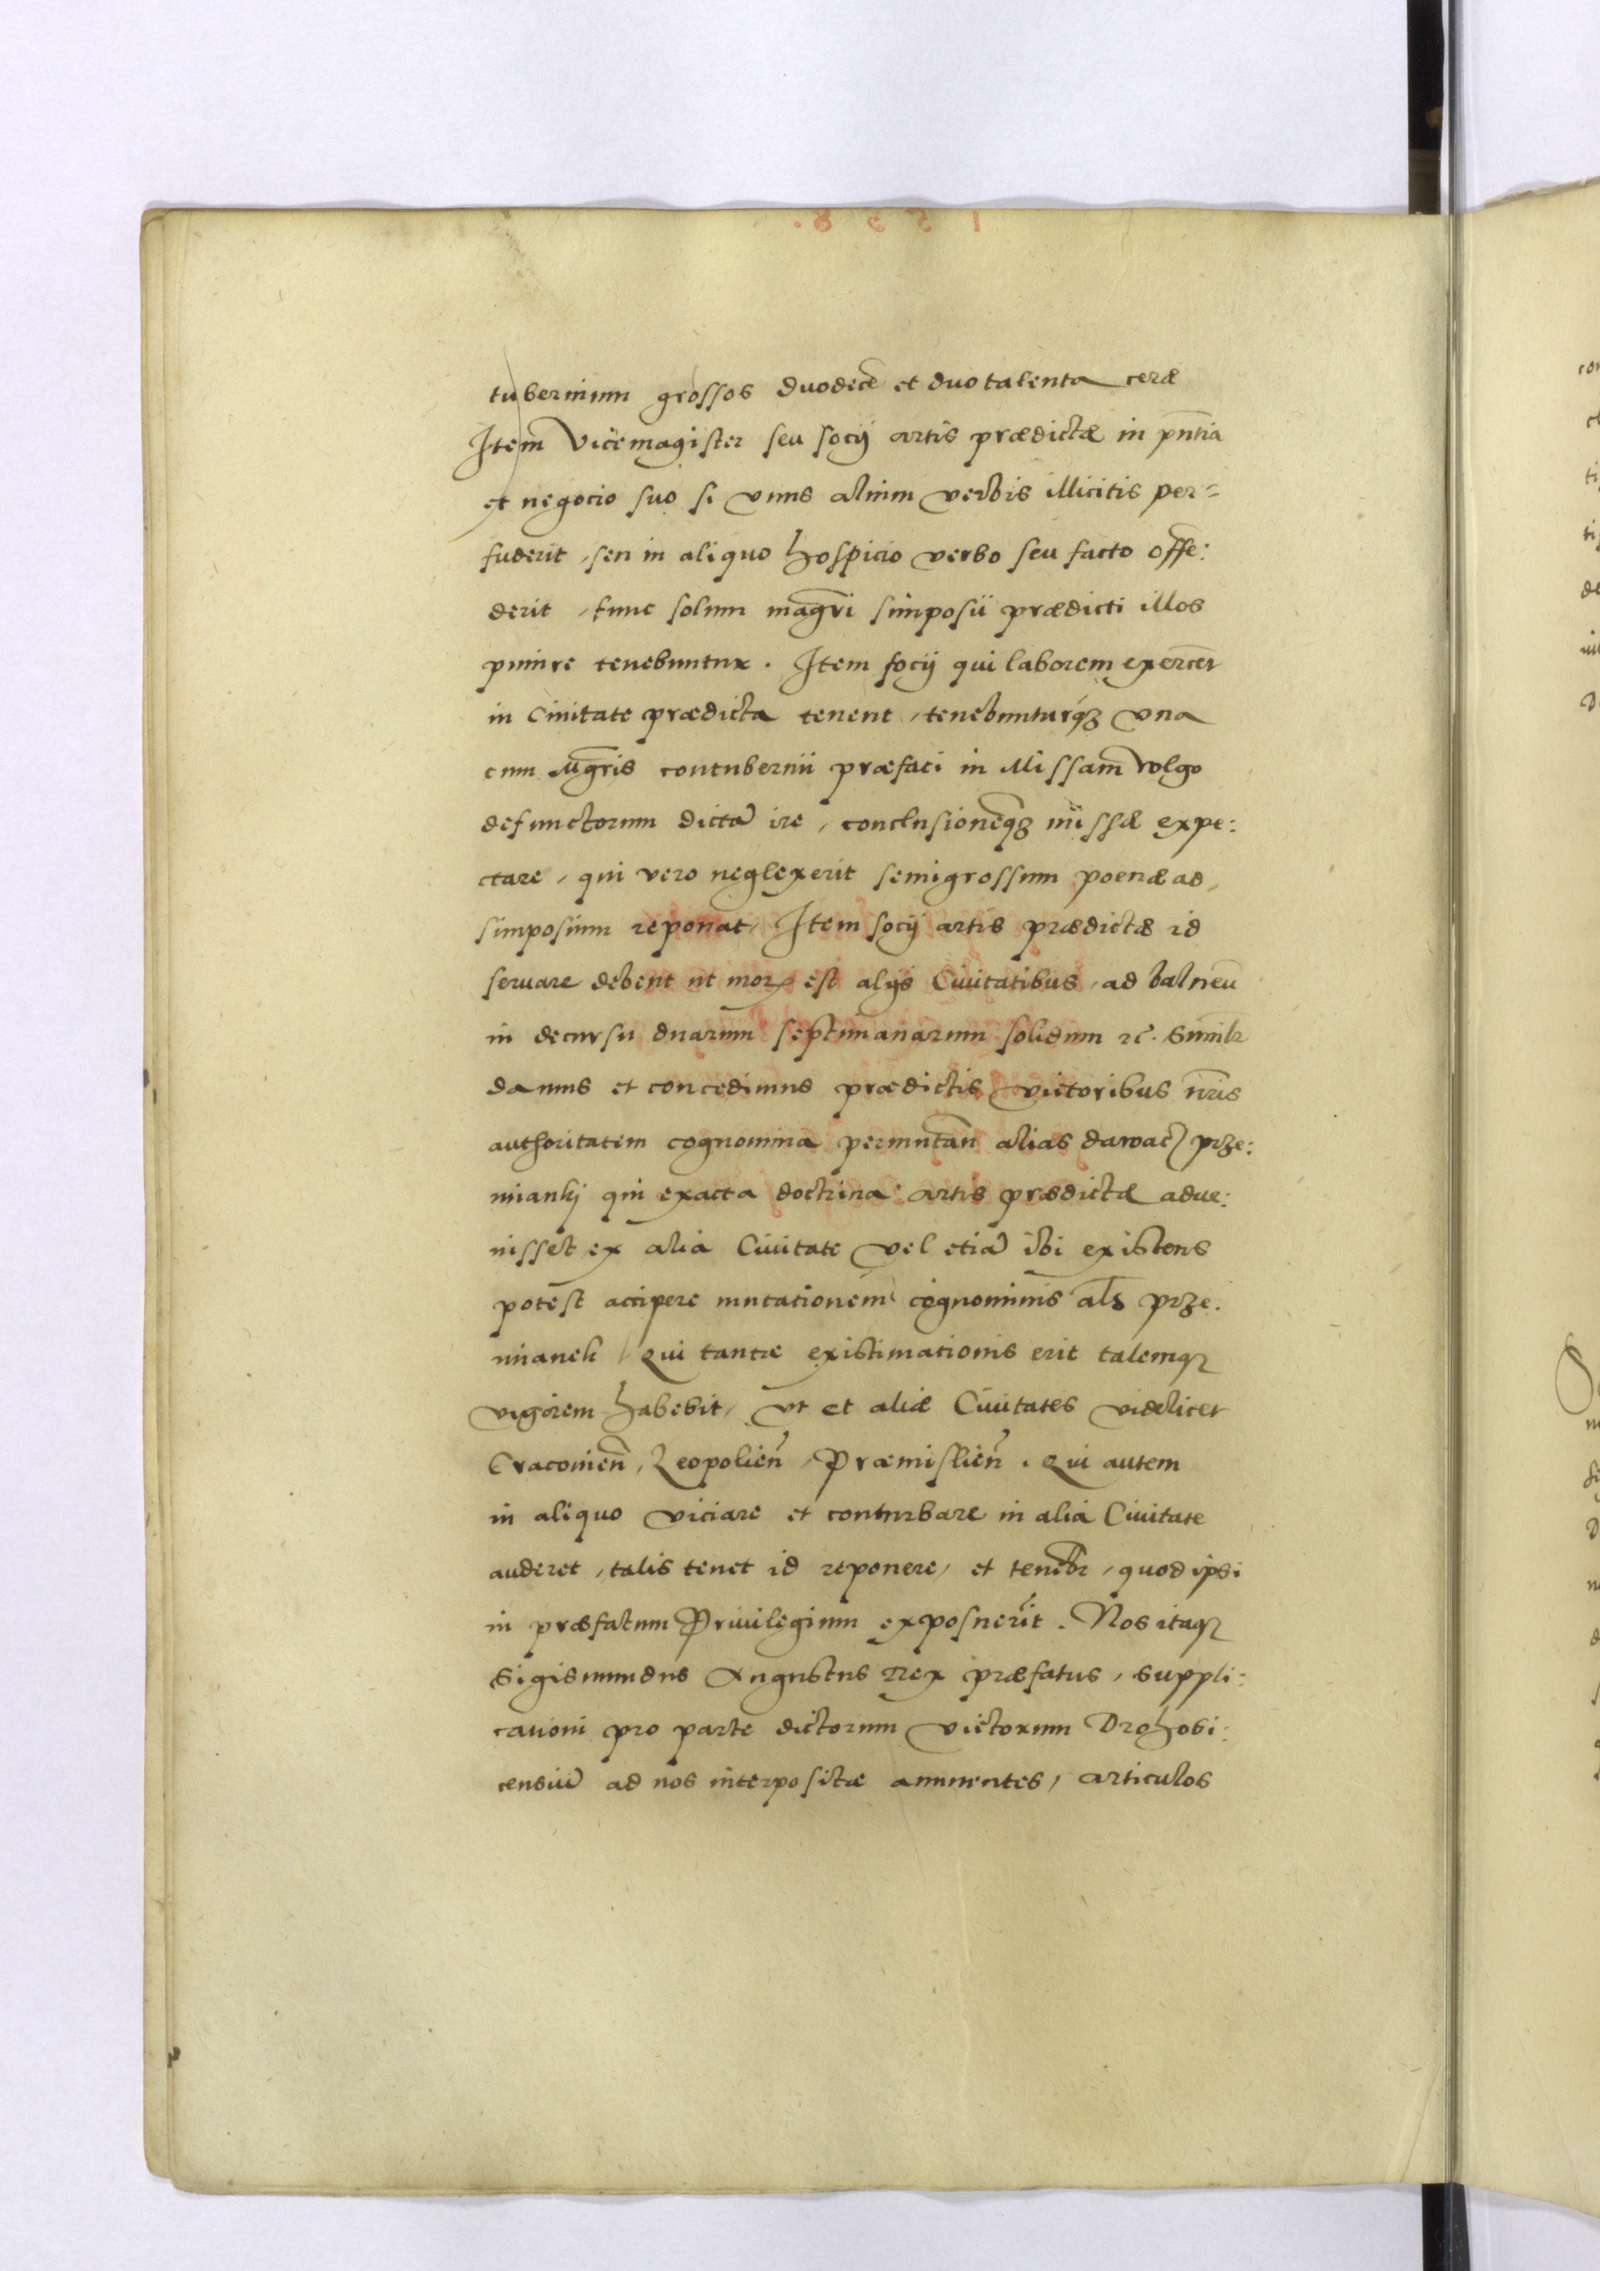 tubernium grossos duodecē et duo talenta ceræ
Item Vicemagister seu socij artis prædictæ in pn̄tia
et negocio suo si vnus alium verbis illicitis per=
fuderit, seu in aliquo hospicio verbo seu facto offē:
derit, tunc solum magr̄i simposii prædicti illos
punire tenebuntur. Item socij qui laborem exercēt
in Ciuitate prædicta tenent, tenebunturq3 vna
cum Mgr̄is contubernii præfati in Missam volgo
defunctorum dictā ire, conclusionēq3 missæ expe:
ctare, qui vero neglexerit semigrossum poenæ ad,
simposium reponat, Item socij artis prædictæ id
seruare debent ut mos est alijs Ciuitatibus, ad balneū
in decursu duarum septimanarum solidum rc̄. Similr̄
damus et concedimus prædictis victoribus nr̄is
authoritatem cognomina permutan̄ alias dawacz prze:
mianki qui exacta doctrina artis prædictæ adue:
nisset ex alia Ciuitate vel etiā ibi existens
potest accipere mutationem cognominis als prze.
mianek Qui tantæ existimationis erit talemq3
vigorem habebit, vt et aliæ Ciuitates videlicet
Cracouien̄, Leopolien̄, Præmislien̄. Qui autem
in aliquo viciare et conturbare in alia Ciuitate
auderet, talis tenet id reponere, et tenebr̄, quod ipsi
in præfatum Priuilegium exposuerīt. Nos itaq3
Sigismundus Augustus Rex præfatus, suppli:
cationi pro parte dictorum victorum Drohobi:
censiū ad nos interpositæ annuentes, articulos